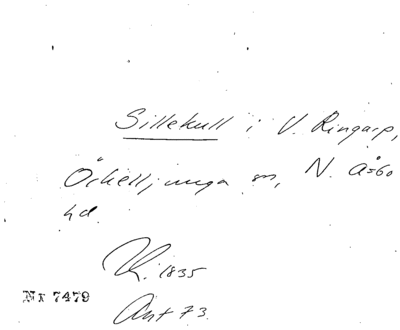 Sillekull i V. Ringarp,
Örkelljunga sn, N. Åsbo
hd.
K. 1835
Nr 7479
Ant 73.